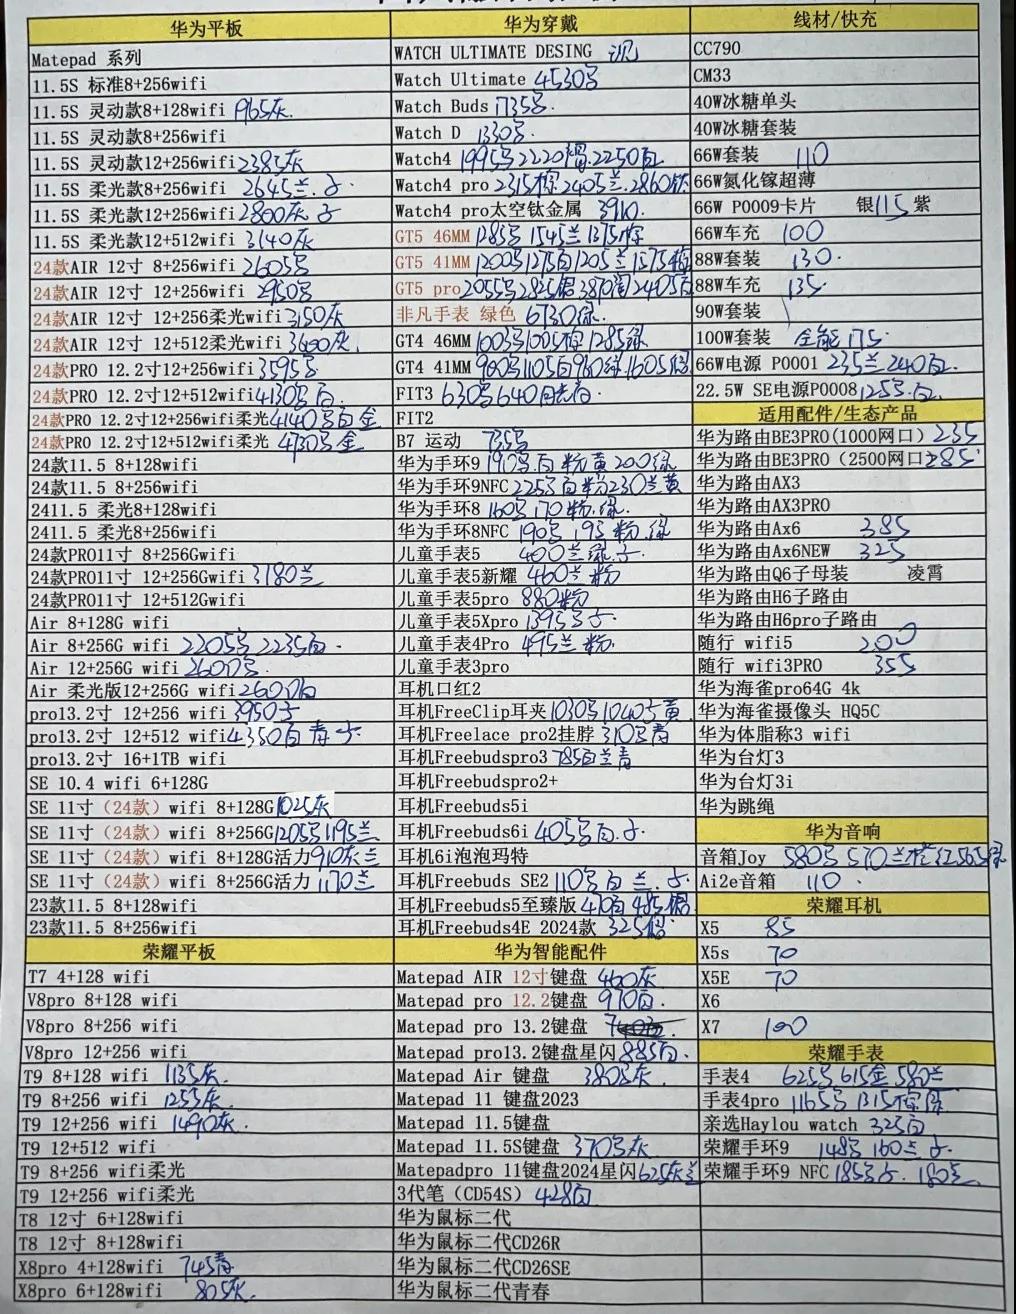 华为平板
Matepad 系列
11.5S 标准8+256wifi
11.5S 灵动款8+128wifi 965灰.
11.5S 灵动款8+256wifi
11.5S 灵动款12+256wifi 2385灰
11.5S 柔光款8+256wifi 2645兰.
11.5S 柔光款12+256wifi 2800灰
11.5S 柔光款12+512wifi 3140灰
24款AIR 12寸 8+256wifi 2605
24款AIR 12寸 12+256wifi 2950
24款AIR 12寸 12+256柔光wifi 3150灰
24款AIR 12寸 12+512柔光wifi 3600灰.
24款PRO 12.2寸12+256wifi 3595
24款PRO 12.2寸12+512wifi 4130 白.
24款PRO 12.2寸12+256wifi柔光 4140 白金
24款PRO 12.2寸12+512wifi柔光 4730 金
24款11.5 8+128wifi
24款11.5 8+256wifi
2411.5 柔光8+128wifi
2411.5 柔光8+256wifi
24款PRO11寸 8+256Gwifi
24款PRO11寸 12+256Gwifi 3180兰
24款PRO11寸 12+512Gwifi
Air 8+128G wifi
Air 8+256G wifi 2205 2235白.
Air 12+256G wifi 2600
Air 柔光版12+256G wifi 2600白
pro13.2寸 12+256 wifi 3950
pro13.2寸 12+512 wifi 4350白 青
pro13.2寸 16+1TB wifi
SE 10.4 wifi 6+128G
SE 11寸（24款）wifi 8+128G 1025灰
SE 11寸（24款）wifi 8+256G 1205 1195兰
SE 11寸（24款）wifi 8+128G活力 910灰兰
SE 11寸（24款）wifi 8+256G活力 1170兰
23款11.5 8+128wifi
23款11.5 8+256wifi
荣耀平板
T7 4+128 wifi
V8pro 8+128 wifi
V8pro 8+256 wifi
V8pro 12+256 wifi
T9 8+128 wifi 1135灰.
T9 8+256 wifi 1255灰.
T9 12+256 wifi 1490灰.
T9 12+512 wifi
T9 8+256 wifi柔光
T9 12+256 wifi柔光
T8 12寸 6+128wifi
T8 12寸 8+128wifi
X8pro 4+128wifi 745青
X8pro 6+128wifi 805灰.
华为穿戴
WATCH ULTIMATE DESING
Watch Ultimate 4530
Watch Buds 1735
Watch D 1330
Watch4 1995 2220 2250白
Watch4 pro 2315棕 2405兰.2860钛
Watch4 pro太空钛金属 3910.
GT5 46MM 1285 1545兰 1375棕
GT5 41MM 1200 1275白 1205兰
GT5 pro 2055
非凡手表 绿色 6730绿.
GT4 46MM 1005棕 1285绿
GT4 41MM 1105白 960绿 1605
FIT3 630 640
FIT2
B7 运动 735
华为手环9 190 白 粉 黄 200绿
华为手环9NFC 225 白 粉 230兰黄
华为手环8 160 170 粉.绿
华为手环8NFC 190 195 粉.绿
儿童手表5 400兰绿.
儿童手表5新耀 460兰 粉
儿童手表5pro 880粉
儿童手表5Xpro 1395
儿童手表4Pro 495兰 粉.
儿童手表3pro
耳机口红2
耳机FreeClip耳夹 1030 1040 黄
耳机Freelace pro2挂脖 310 青
耳机Freebudspro3 785白兰青
耳机Freebudspro2+
耳机Freebuds5i
耳机Freebuds6i 405 白.
耳机6i泡泡玛特
耳机Freebuds SE2 110 白 兰.
耳机Freebuds5至臻版 470白 485
耳机Freebuds4E 2024款 325
华为智能配件
Matepad AIR 12寸键盘 460灰
Matepad pro 12.2键盘 970白.
Matepad pro 13.2键盘
Matepad pro13.2键盘星闪 885白.
Matepad Air 键盘 380 灰.
Matepad 11 键盘2023
Matepad 11.5键盘
Matepad 11.5S键盘 370 灰
Matepadpro 11键盘2024星闪 625灰兰
3代笔（CD54S）428白
华为鼠标二代
华为鼠标二代CD26R
华为鼠标二代CD26SE
华为鼠标二代青春
线材/快充
CC790
CM33
40W冰糖单头
40W冰糖套装
66W套装 110
66W氮化镓超薄
66W P0009卡片 银115 紫
66W车充 100
88W套装 130.
88W车充 135.
90W套装
100W套装 全能 175.
66W电源 P0001 235兰 240白.
22.5W SE电源P0008 125 白.
适用配件/生态产品
华为路由BE3PRO(1000网口) 235
华为路由BE3PRO（2500网口 285
华为路由AX3
华为路由AX3PRO
华为路由Ax6 385
华为路由Ax6NEW 325
华为路由Q6子母装 凌霄
华为路由H6子路由
华为路由H6pro子路由
随行 wifi5 200
随行 wifi3PRO 355
华为海雀pro64G 4k
华为海雀摄像头 HQ5C
华为体脂称3 wifi
华为台灯3
华为台灯3i
华为跳绳
华为音响
音箱Joy 580 570兰 红565绿
Ai2e音箱 110.
荣耀耳机
X5 85
X5s 70
X5E 70
X6
X7 100
荣耀手表
手表4 625 615金 580兰
手表4pro 1165 1315棕
亲选Haylou watch 325白
荣耀手环9 148 160兰
荣耀手环9 NFC 185 . 180兰